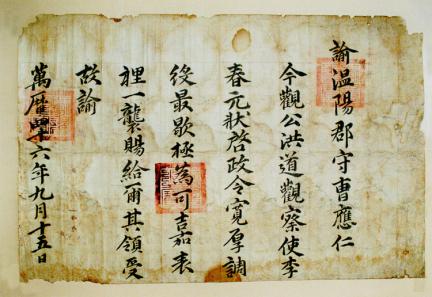 諭溫陽郡守曹應仁
今觀公洪道觀察使李
春元狀啓政令寬厚調
役最歇極為可嘉表
裡一襲賜給爾其領受
故諭
萬曆四十六年九月十五日